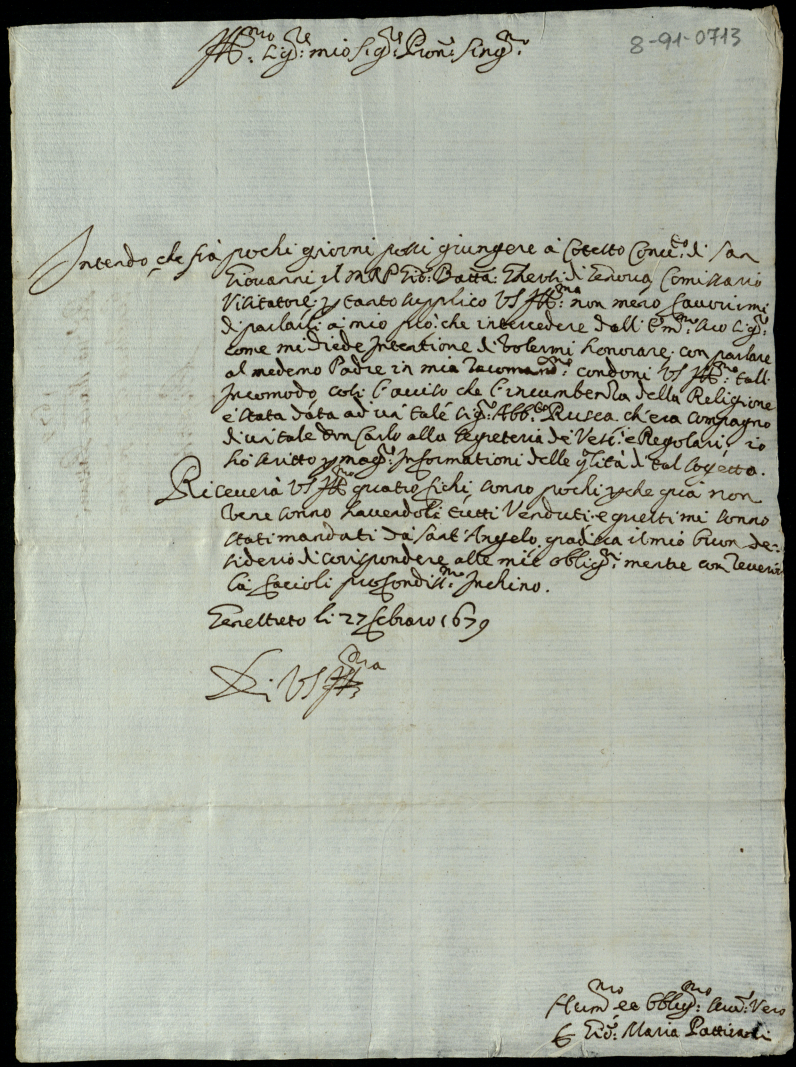 8-91-0713
Ill:mo Sig:re mio Sig:re Pron: Sing:mo
Intendo che frà pochi giorni possi giungere à Cotesto Conu:to di San
Giouanni il MRP Gio: Batta: di Genoua Comissario
Visitatore; p tanto supplico VS Ill:ma non meno fauorirmi
di parlarli à mio prò: che intercedere dall Em:mo suo Sig:
come mi diede Intentione di volermi honorare, con parlare
al medemo Padre in mia racomand:ne: condoni VS Ill:ma tall
Incomodo, coll l'auiso che l'incumbenza della Religione
è stata data ad un tale Sig:r Abb:te Rusca ch'era compagno
di un tale Don Carlo alla segreteria de Vesc: e Regolari, io
hò scritto p mag: Informationi delle qlità di tal sogetto.
Riceuerà VS Ill:ma quatro fichi sonno pochi pche quà non
vene sonno hauendoli tutti Venduti, e questi mi sonno
stati mandati da Sant'Angelo, gradisca il mio buon de-
siderio di corispondere alle mie oblig:ni mentre con reueri
li faccioli profondiss:mo Inchino.
li 27 febraro 1679
Di VS Ill:ma
Hum:mo et Obblig:mo Seru: Vero
F Gio: Maria